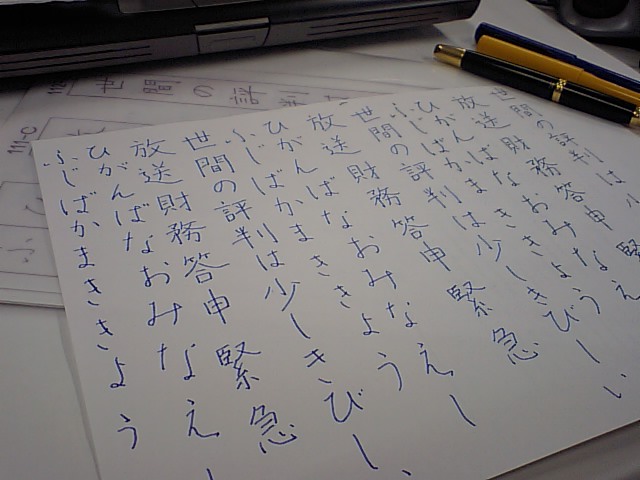 世間の評判は少
放送財務答申緊
ひがんばなおみなえし
ふじばかまききょう
世間の評判は少しきびしい
放送財務答申緊急
ひがんばなおみなえし
ふじばかまききょう
世間の評判は少しきびしい
放送財務答申緊急
ひがんばなおみなえし
ふじばかまききょう
世間の評判
111-0